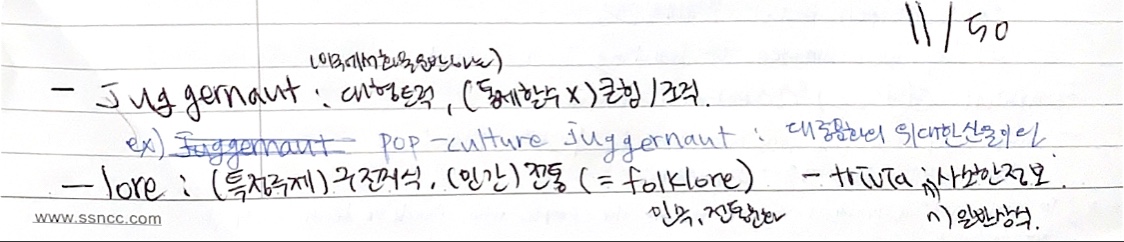 11/30
- Juggernaut : 대형트럭, (통제할 수 X) 큰힘/조직.
ex) Juggernaut pop-culture juggernaut : 대중문화의 위대한 산물이다
- lore : (특정주제) 구전지식, (민간) 전통 (= folklore) - trivia ; 사소한 정보.
민속, 전통문화 n) 일반상식.
www.ssncc.com